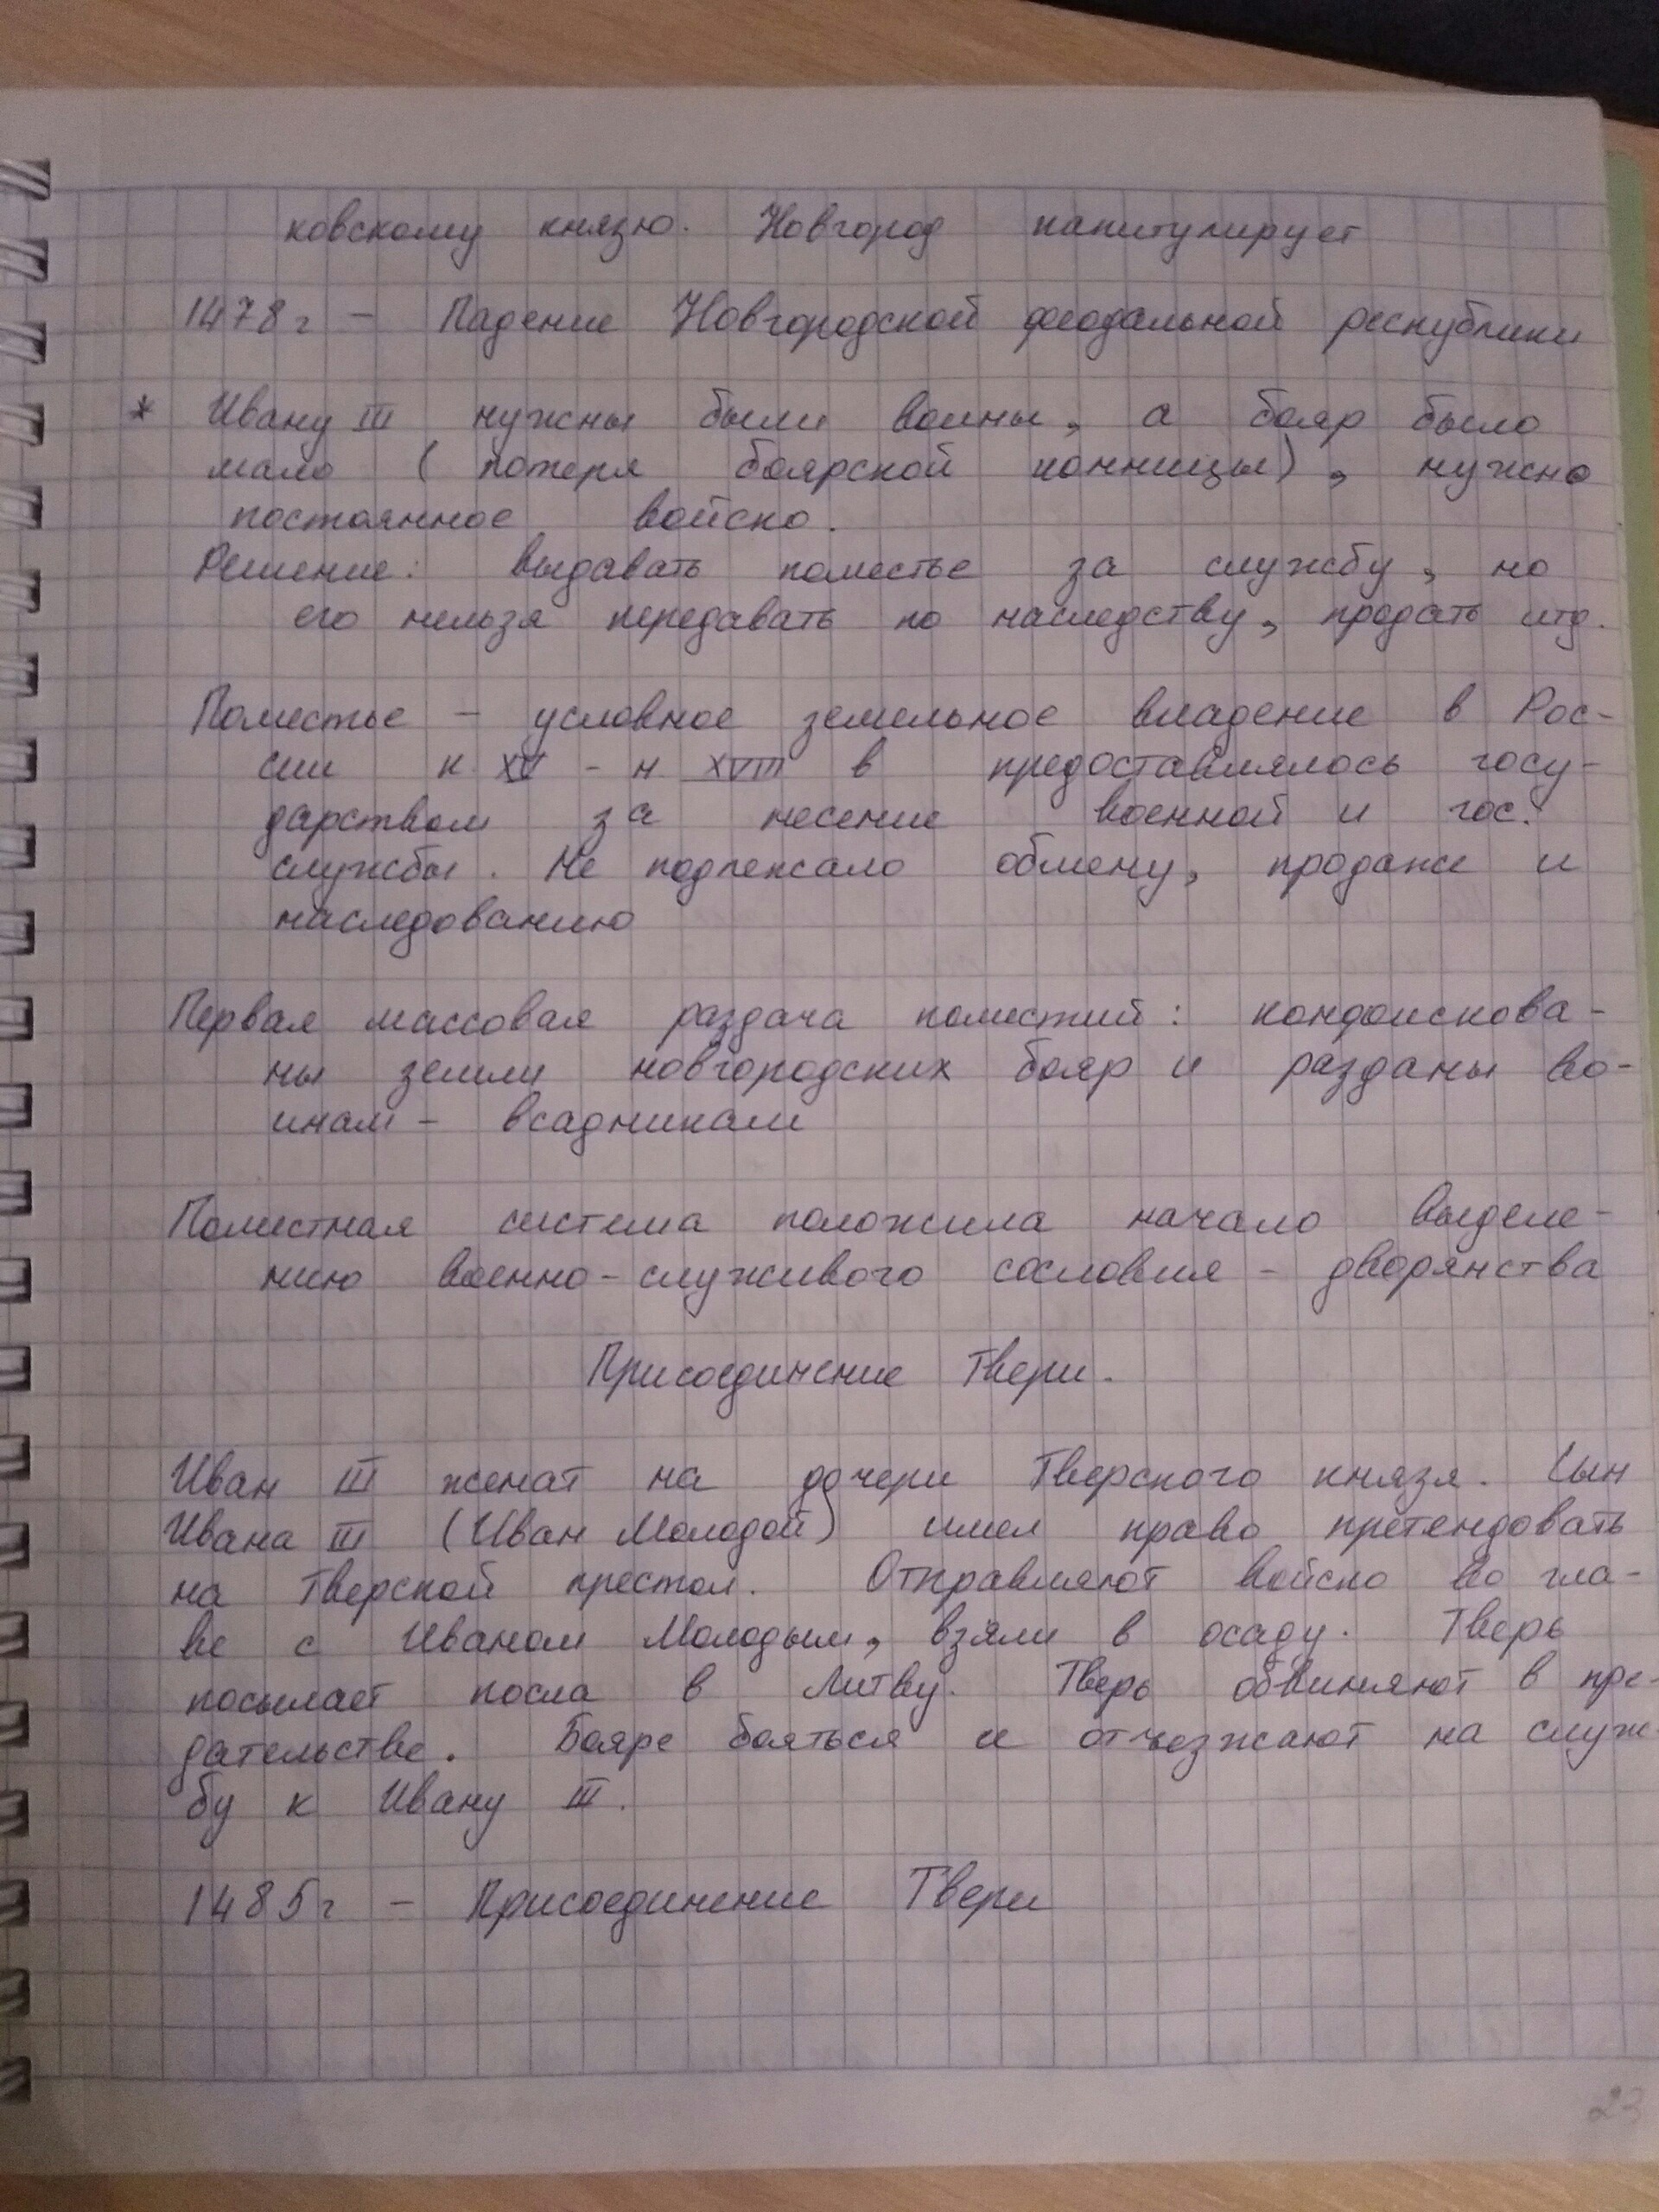 ковскому князю. Новгород капитулирует
1478г – Падение Новгородской феодальной республики
* Ивану III нужны были воины, а бояр было
мало (потеря боярской конницы), нужно
постоянное войско.
Решение: выдавать поместье за службу, но
его нельзя передавать по наследству, продать итд.
Поместье – условное земельное владение в Рос-
сии к XV - н XVIII в предоставлялось госу-
дарством за несение военной и гос.
службы. Не подлежало обмену, продаже и
наследованию
Первая массовая раздача поместий: конфискова-
ны земли новгородских бояр и розданы во-
инам - всадникам
Поместная система положила начало выделе-
нию военно-служивого сословия - дворянства
Присоединение Твери.
Иван III женат на дочери Тверского князя. Сын
Ивана III (Иван Молодой) имел право претендовать
на Тверской престол. Отправляют войско во гла-
ве с Иваном Молодым, взяли в осаду. Тверь
посылает посла в Литву. Тверь обвиняют в пре-
дательстве. Бояре бояться и отъезжают на служ-
бу к Ивану III.
1485г – Присоединение Твери
23